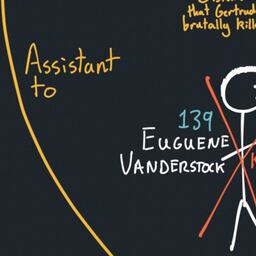 that Gertrud
brutally kille
Assistant
to
139
EUGUENE
VANDERSTOCK